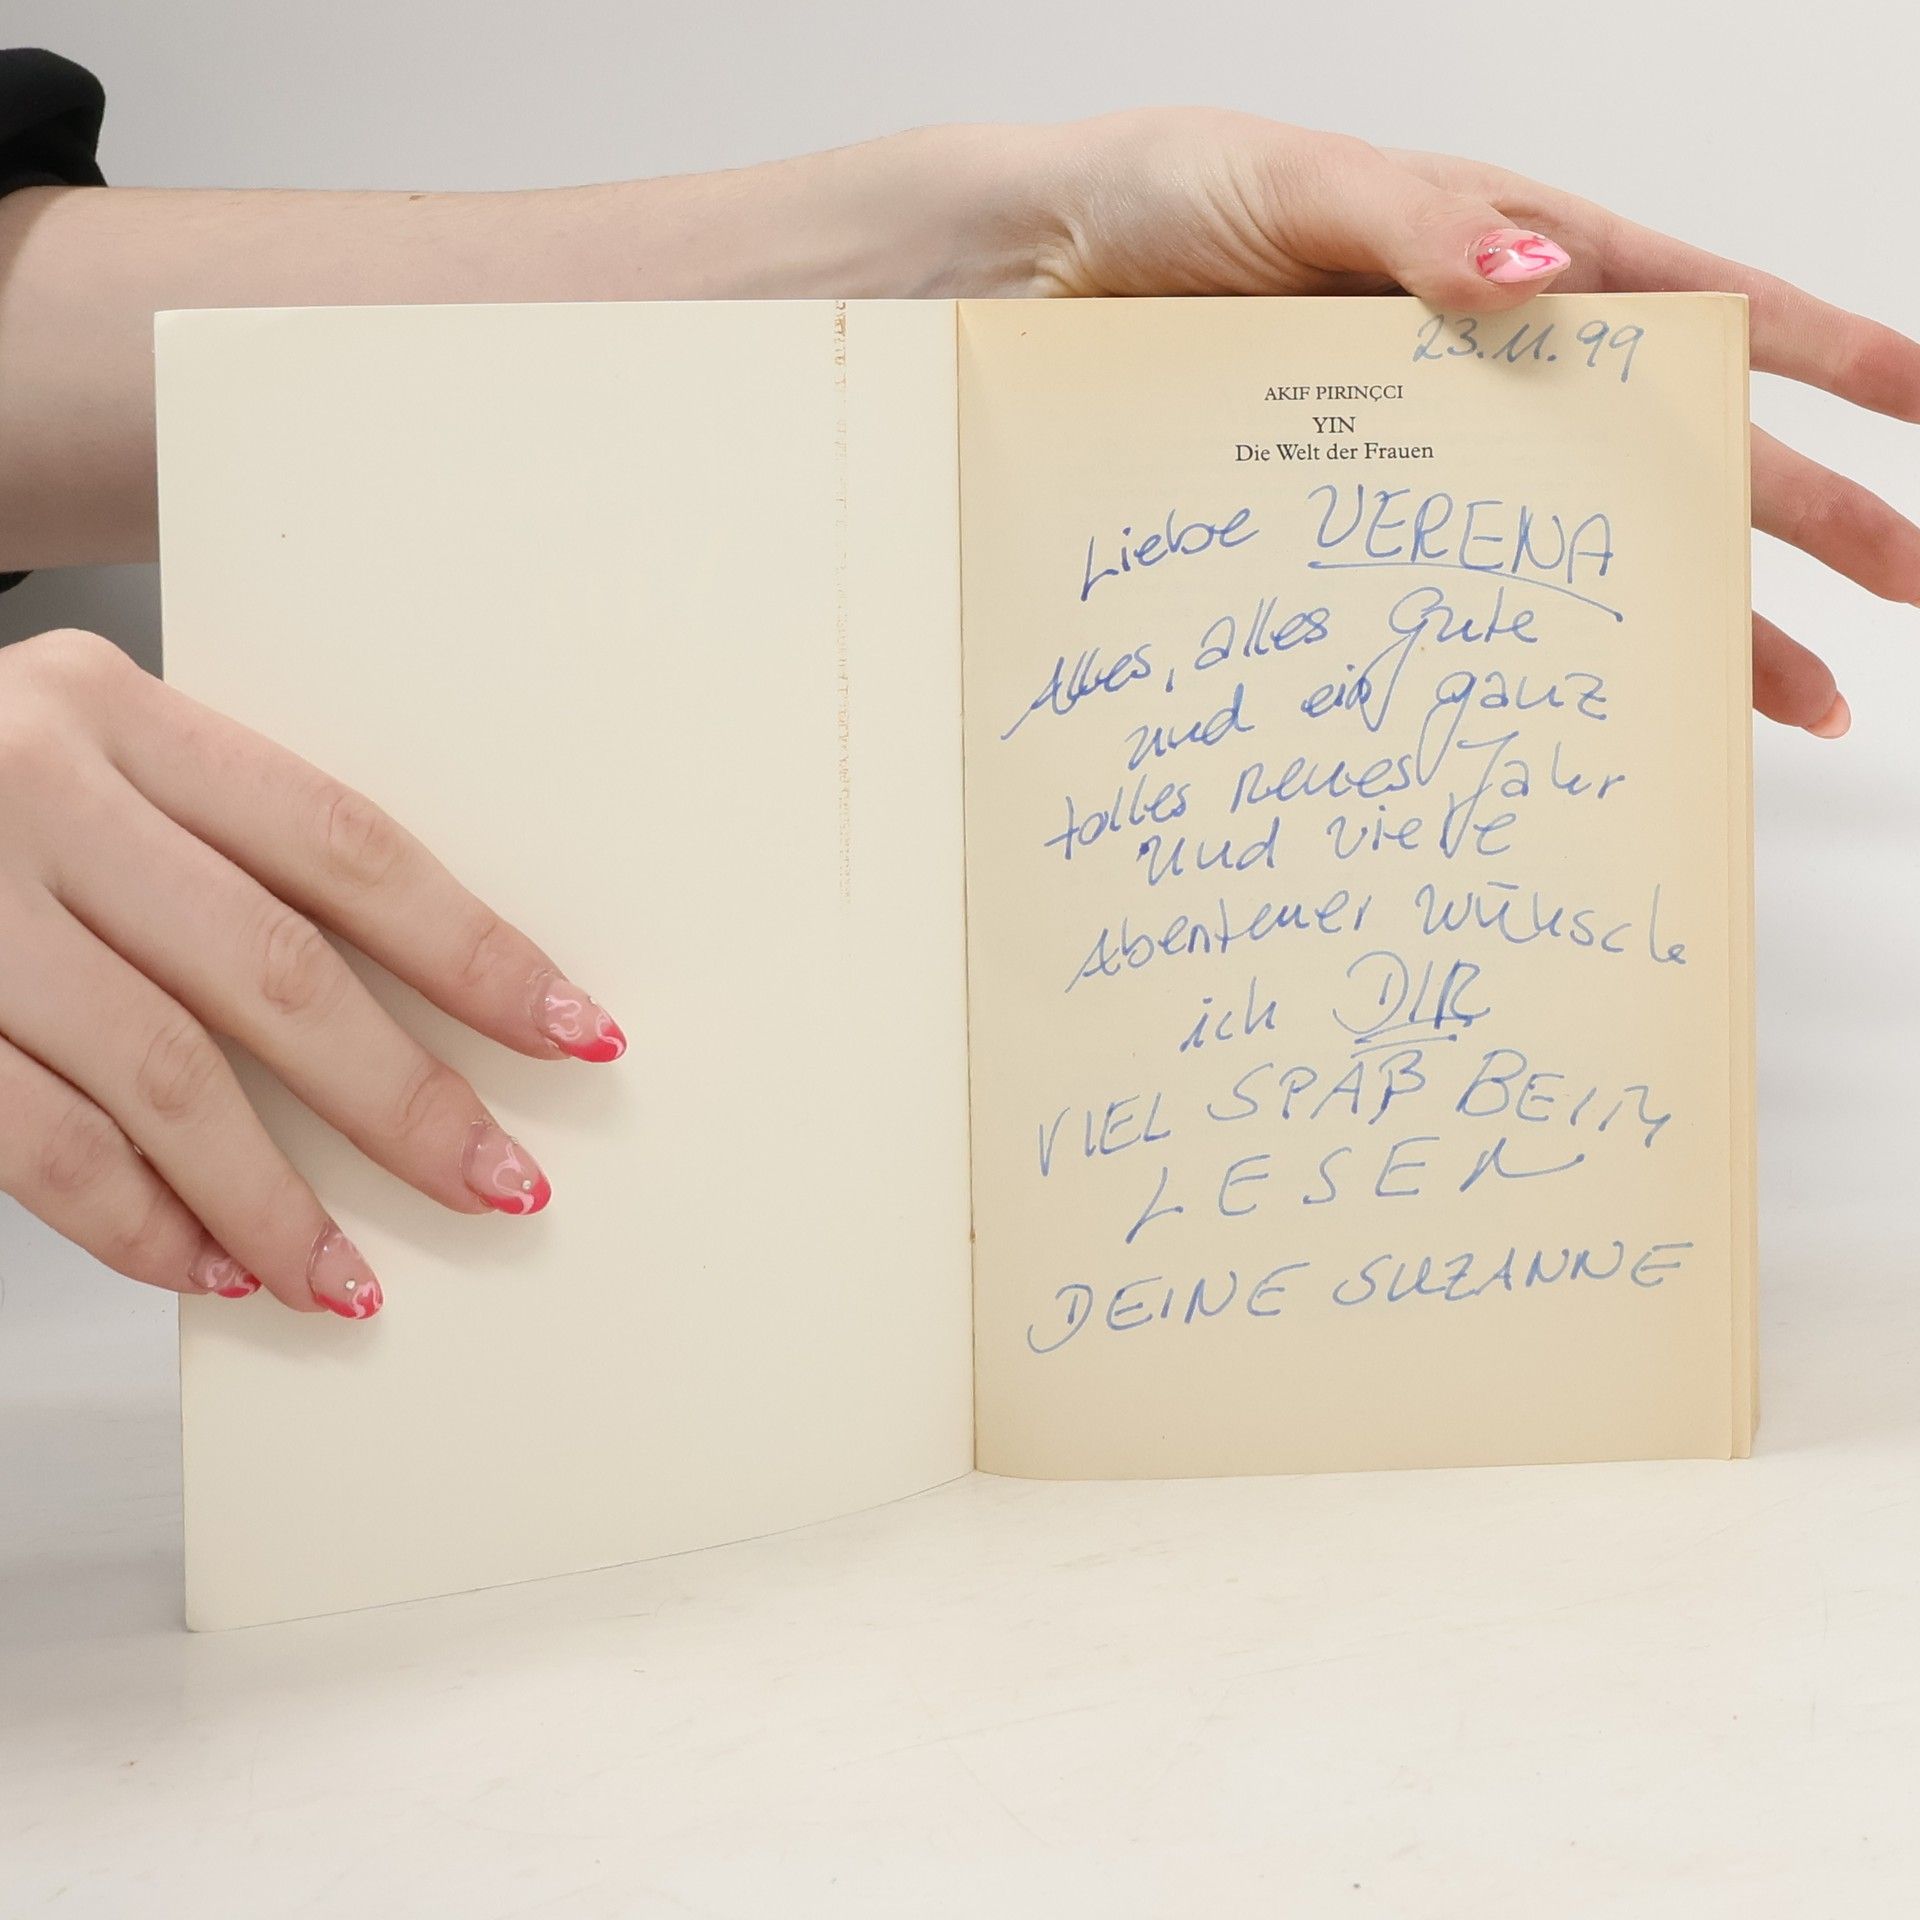 23.11.99
AKIF PIRINÇCI
YIN
Die Welt der Frauen
Liebe VERENA
Alles, alles Gute
und ein ganz
tolles neues Jahr
und viele
Abenteuer wünsche
ich DIR
VIEL SPAß BEIM
LESEN
DEINE SUZANNE